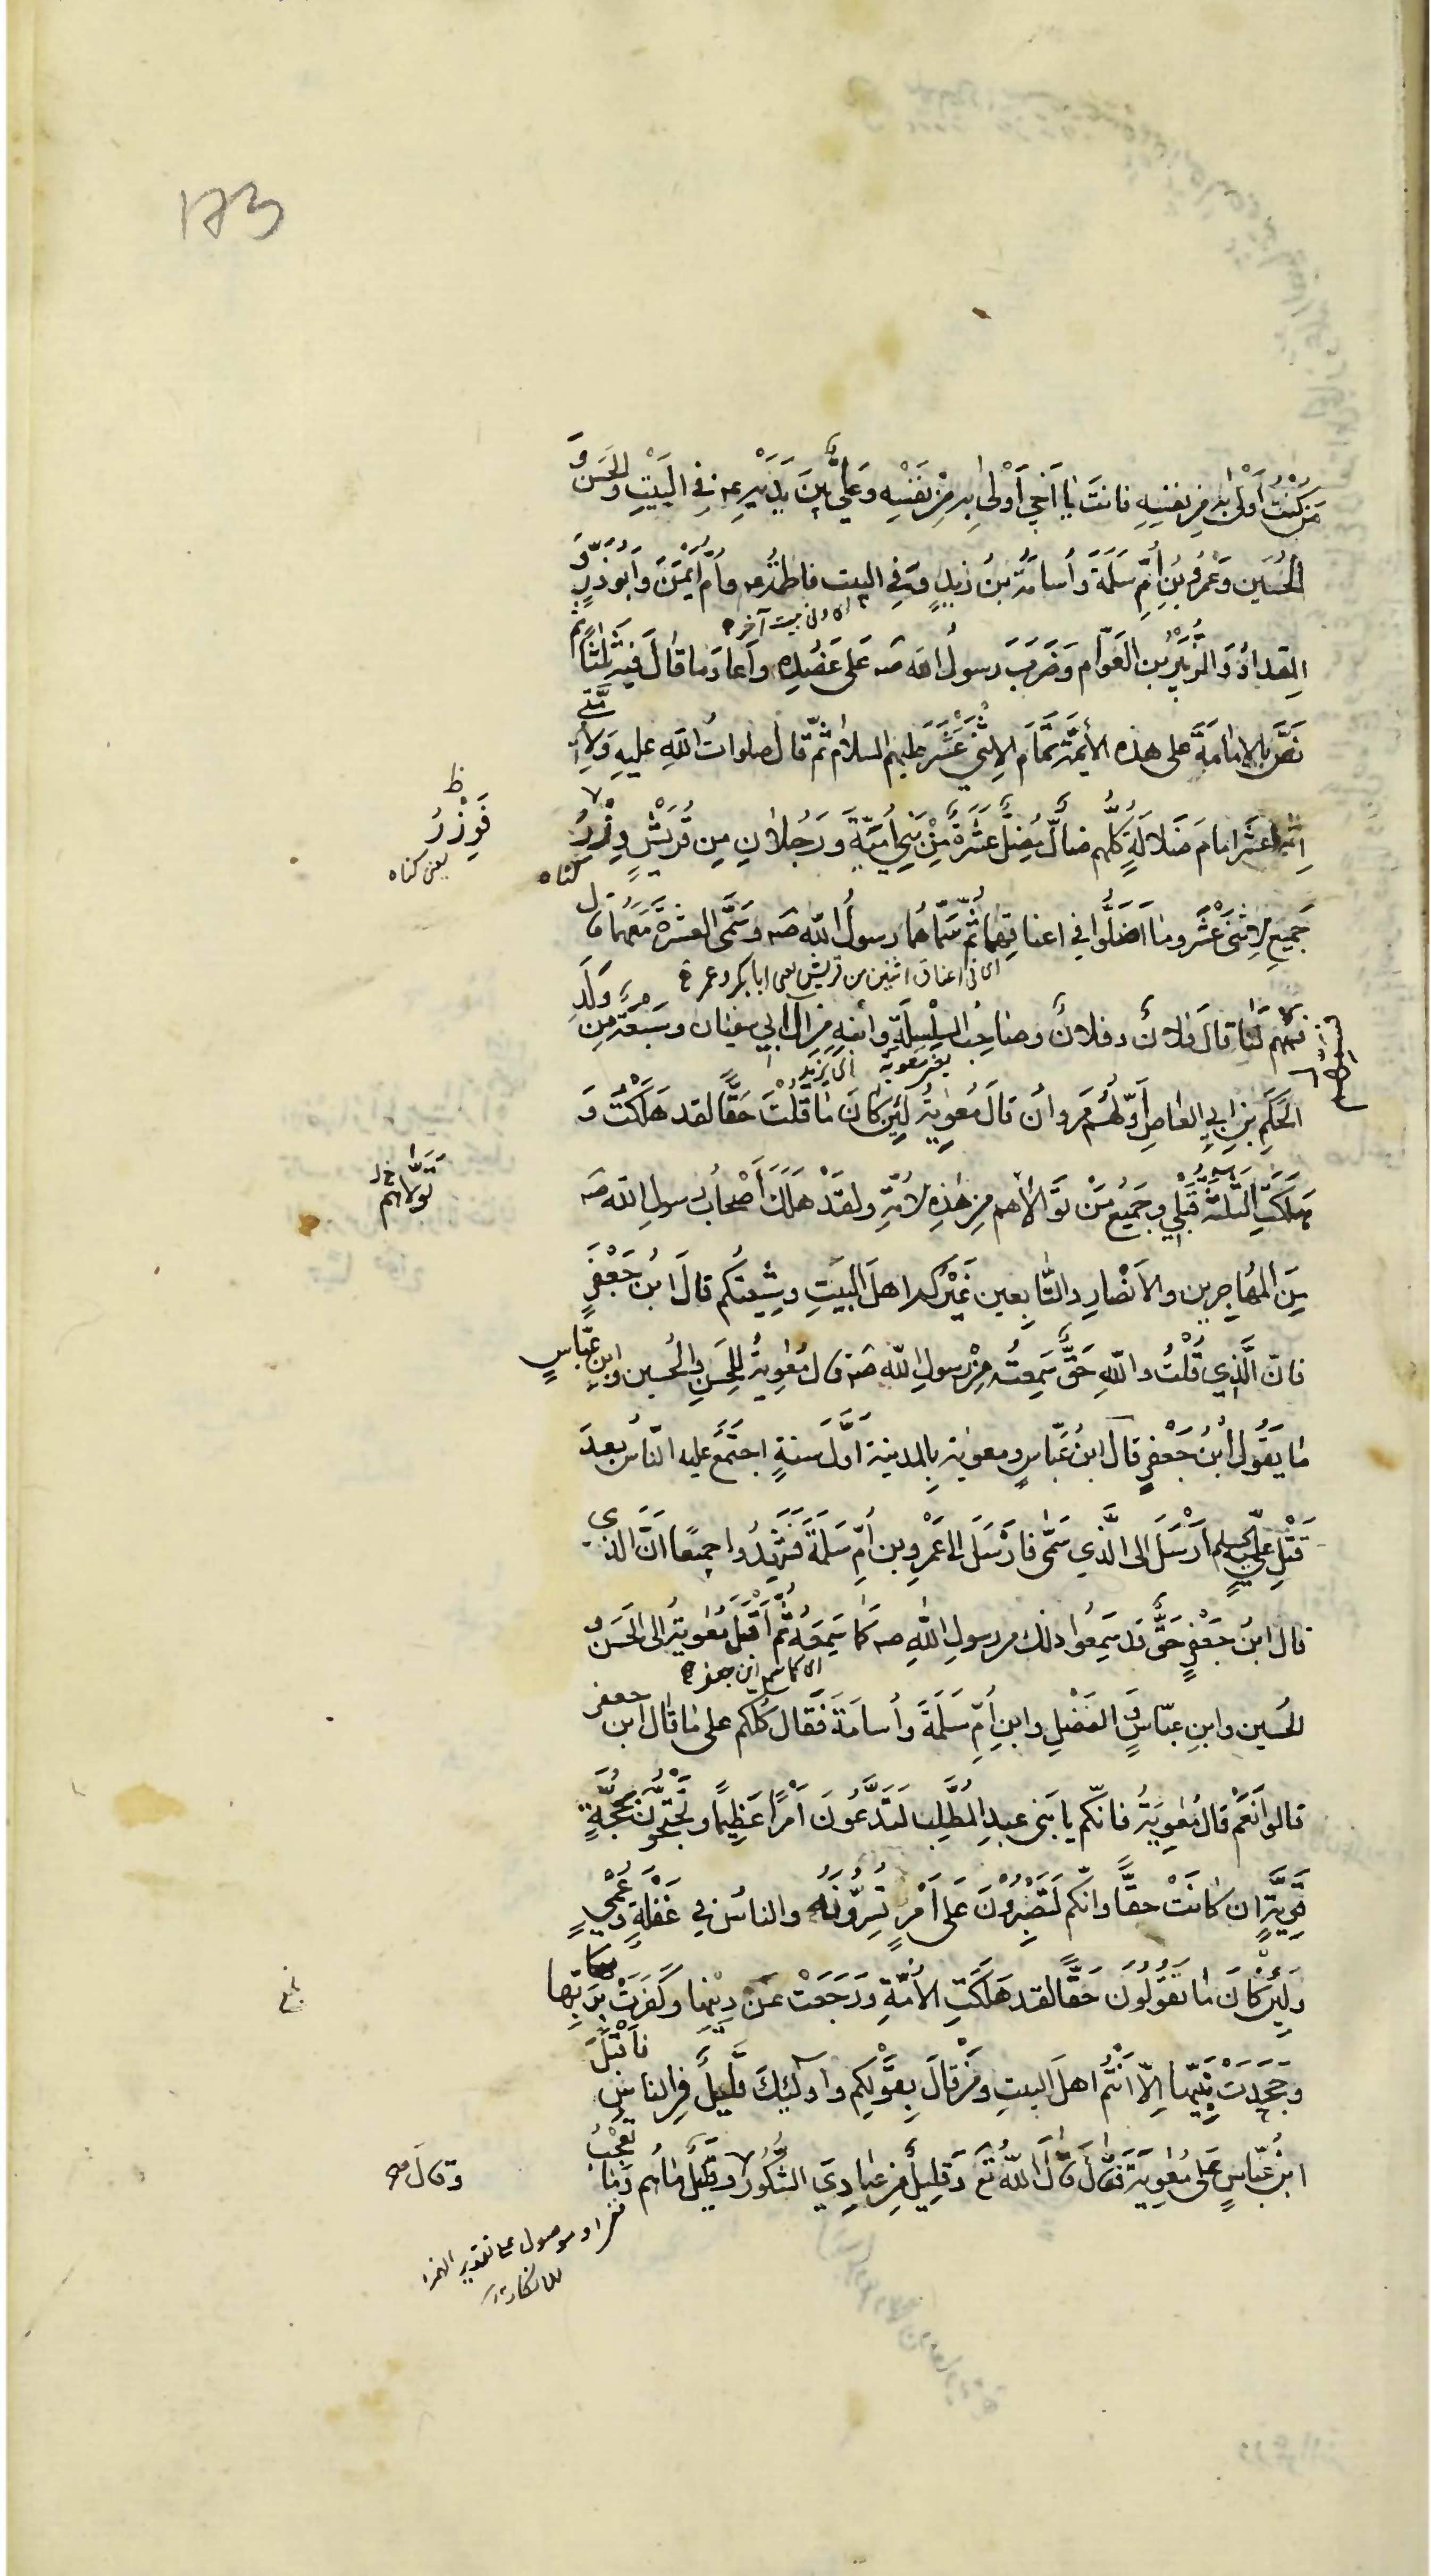 173
مَنْ كُنْتُ أَوْلىٰ بِهِ مِنْ نفسِهِ فانتَ يا اَخي اَوْلىٰ بِهِ مِنْ نَفْسِهِ وَعَلِيٌّ بَيْنَ يَدَيْهِ ع فِي البَيْتِ وَالحَسَنُ وَ
الحُسَين وَعَمْرُو بْنُ أُمِّ سَلَمَةَ وَأُسامَةُ بنُ زَيْدٍ وَفِي البيت فاطِمَةُ ع وَأُمّ اَيْمَنَ وَاَبُوذَرٍّ وَ
اي وفي بيت آخر
المِقدادُ وَالزُّبَيْرُ بن العَوّام وَضَرَبَ رسولُ الله صه عَلىٰ عَضُدِهِ وَاَعادَ ما قالَ فيهِ ثَلثًا ثمّ
نَصَّ بِالإمامَةِ على هذه الأَئِمَّةِ تَمامَ الإثْنَيْ عَشَرَ عليهم السلام ثمّ قال صلوات اللّهِ عليهِ وَلِأُمَّتي
اِثْنا عَشَرَ امامَ ضَلالَةٍ كُلُّهم ضالٌّ مُضِلٌّ عَشَرَةٌ مِنْ بَني اُمَيَّةَ وَرَجُلانِ مِن قُرَيْشٍ وِزْرُ
ظ
فَوِزْرُ
يعني كناه
كناه
جَميعِ الإثنَيْ عَشَرَ وما اَضَلُّوا في اعناقِهِما ثُمَّ سَمّاهُما رسولُ اللّه صه وَسَمَّى العَشَرَةَ مَعَهُما قال
اي في اعناق اثنين من قريش يعني ابا بكر وعمر
فَسَمِّهِم لَنا قالَ فلانٌ وفلانٌ وصاحِبُ السِّلْسِلَةِ وَابنُهِ مِن آلِ ابي سفيان وسَبعَةٌ مِن وَلَدِ
يعني معوية
اي يزيد
الحَكَمِ بنِ ابي العاصِ اَوّلُهُم مَروان قالَ مُعوِيةُ لَئِن كانَ ما قُلْتَ حَقًّا لقد هَلَكْتُ وَ
هَلَكَتِ الثَّلٰثَةُ قَبْلي وجَميعُ مَنْ تَوَالاهم مِن هٰذِهِ الأُمَّةِ ولقَدْ هَلَكَ اَصْحابُ رسولِ الله صه
تَوَلّاهم خ ل
مِنَ المُهاجِرين والاَنصارِ والتّابِعين غَيْرَكم اهلَ البَيتِ وشِيعَتَكُم قالَ ابنُ جَعْفَرٍ
فانّ الَّذي قُلْتُ واللّهِ حَقٌّ سَمِعتُه مِنْ رسولِ اللّه صه قال مُعٰوِيةُ لِلحَسَنِ والحُسين وابنِ عَبّاسٍ
ما يَقُولُ ابْنُ جَعْفَرٍ قالَ ابنُ عَبّاسٍ ومعوية بِالمدينةِ اَوَّلَ سَنةٍ اجتَمَعَ عليه النّاسُ بعدَ
قَتْلِ عَلِيٍّ عليه السلم اَرْسِلْ الى الَّذي سَمّى فاَرْسَلَ الى عَمْرِو بنِ أُمِّ سَلَمَةَ فَشَهِدُوا جميعًا اَنَّ الذي
قالَ ابنُ جَعْفَرٍ حَقٌّ قد سَمِعُوا ذلك من رسولِ اللّهِ صه كَما سَمِعَهُ ثُمَّ اَقْبَلَ مُعٰويةُ الى الحَسَنِ وَ
اي كما سمع ابن جعفر
الحُسين وابنِ عبّاسٍ وَالفَضْلِ وابنِ أُمِّ سَلَمَةَ وأسامَةَ فَقالَ كُلُّكم على ما قالَ ابن جعفر
قالوا نَعَمْ قالَ مُعٰوِيَةُ فانّكم يا بَني عبدِ المُطَّلِبِ لَتَدَّعُونَ اَمْرًا عَظيمًا وتَحْتَجُّونَ بِحُجَّةٍ
قَوِيَّةٍ ان كانَتْ حقًّا وانّكم لَتَصْبِرُوْنَ عَلى اَمْرٍ تُسِرُّونَهُ والناسُ في غَفْلَةٍ وعُمْيٍ
وَلَئِن كانَ ما تَقولُونَ حَقًّا لقد هَلَكَتِ الأُمَّةُ ورَجَعَتْ عَنْ دِينِها وكَفَرَتْ بِرَبِّها
وجَحَدَتْ نَبِيَّها اِلّا اَنْتُم اهلَ البيتِ ومَنْ قالَ بِقَوْلِكم واُولٰئِكَ قَليلٌ في الناسِ فاَقْبَلَ
ابنُ عَبّاسٍ عَلى مُعٰوِيَةَ فقالَ قالَ اللّهُ تع وَقليلٌ مِن عِبادِيَ الشَّكُورُ وقليلٌ ما هُم وما تعجب
وقال